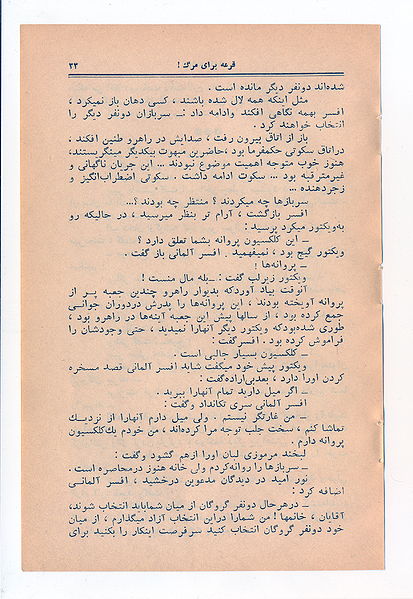 قرعه برای مرگ ! ۲۳
شده‌اند دونفر دیگر مانده است .
مثل اینکه همه لال شده باشند ، کسی دهان باز نمیکرد ،
افسر بهمه نگاهی افکند وادامه داد :ـ سربازان دونفر دیگر را
انتخاب خواهند کرد .
باز از اتاق بیرون رفت ، صدایش در راهرو طنین افکند .
دراتاق سکوتی حکمفرما بود ،حاضرین مبهوت بیکدیگر مینگریستند،
هنوز خوب متوجه اهمیت موضوع نبودند ... این جریان ناگهانی و
غیرمترقبه بود ... سکوت ادامه داشت . سکوتی اضطراب‌انگیز و
زجردهنده ...
سربازها چه میکردند ؟ منتظر چه بودند ؟...
افسر بازگشت ، آرام تر بنظر میرسید ، در حالیکه رو
به‌ویکتور میکرد پرسید :
ـ این کلکسیون پروانه بشما تعلق دارد ؟
ویکتور گیج بود ، نمیفهمید . افسر آلمانی باز گفت .
ـ پروانه‌ها !
ویکتور زیرلب گفت :ـبله مال منست !
آنوقت بیاد آوردکه بدیوار راهرو چندین جعبه پـر از
پروانه آویخته بودند ، این پروانه‌ها را پدرش دردوران جوانـی
جمع کرده بود . از سالها پیش این جعبه آینه‌ها در راهرو بود ،
طوری شده‌بودکه ویکتور دیگر آنهارا نمیدید ، حتی وجودشان را
فراموش کرده بود . افسرگفت :
ـ کلکسیون بسیار جالبی است .
ویکتور پیش خود میگفت شاید افسر آلمانی قصد مسخره
کردن اورا دارد ، بعدبی‌اراده‌گفت :
ـ اگر میل دارید تمام آنهارا ببرید .
افسر آلمانی سری تکانداد وگفت :
ـ من غارتگر نیستم . ولی میل دارم آنهارا از نزدیـك
تماشا کنم ، سخت جلب توجه مرا کرده‌اند ، من خودم یك‌کلکسیون
پروانه دارم .
لبخند مرموزی لبان اورا ازهم گشود وگفت :
ـ سربازها را روانه‌کردم ولی خانه هنوز درمحاصره است .
نور امید در دیدگان مدعوین درخشید ، افسر آلمانـی
اضافه کرد :
ـ درهرحال دونفر گروگان از میان شماباید انتخاب شوند،
آقایان ، خانمها ! من شمارا دراین انتخاب آزاد میگذارم ، از میان
خود دونفر گروگان انتخاب کنید سرفرصت اینکار را بکنید برای